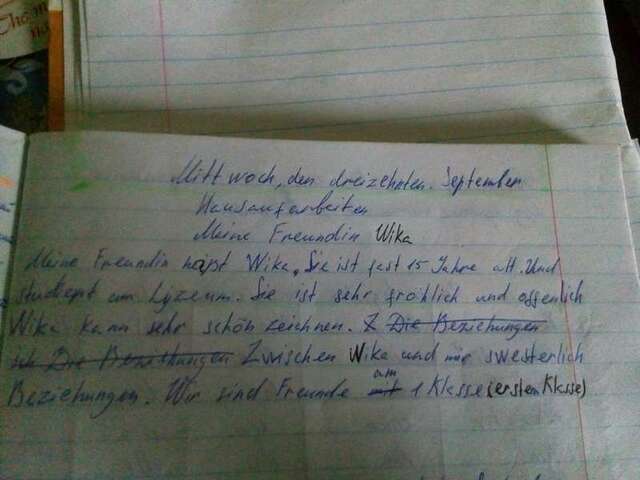 Mittwoch, den dreizehnten. September
Hausaufarbeiten
Meine Freundin Wika
Meine Freundin heißt Wika. Sie ist fast 15 Jahre alt. Und
studkept am Lyzeum. Sie ist sehr fröhlich und offenlich
Wika kann sehr schön zeichnen. Z Die Beziehungen
Die Beziehungen Zwischen Wika und mir swesterlich
Beziehungen. Wir sind Freunde am 1 Klasse (ersten Klasse)